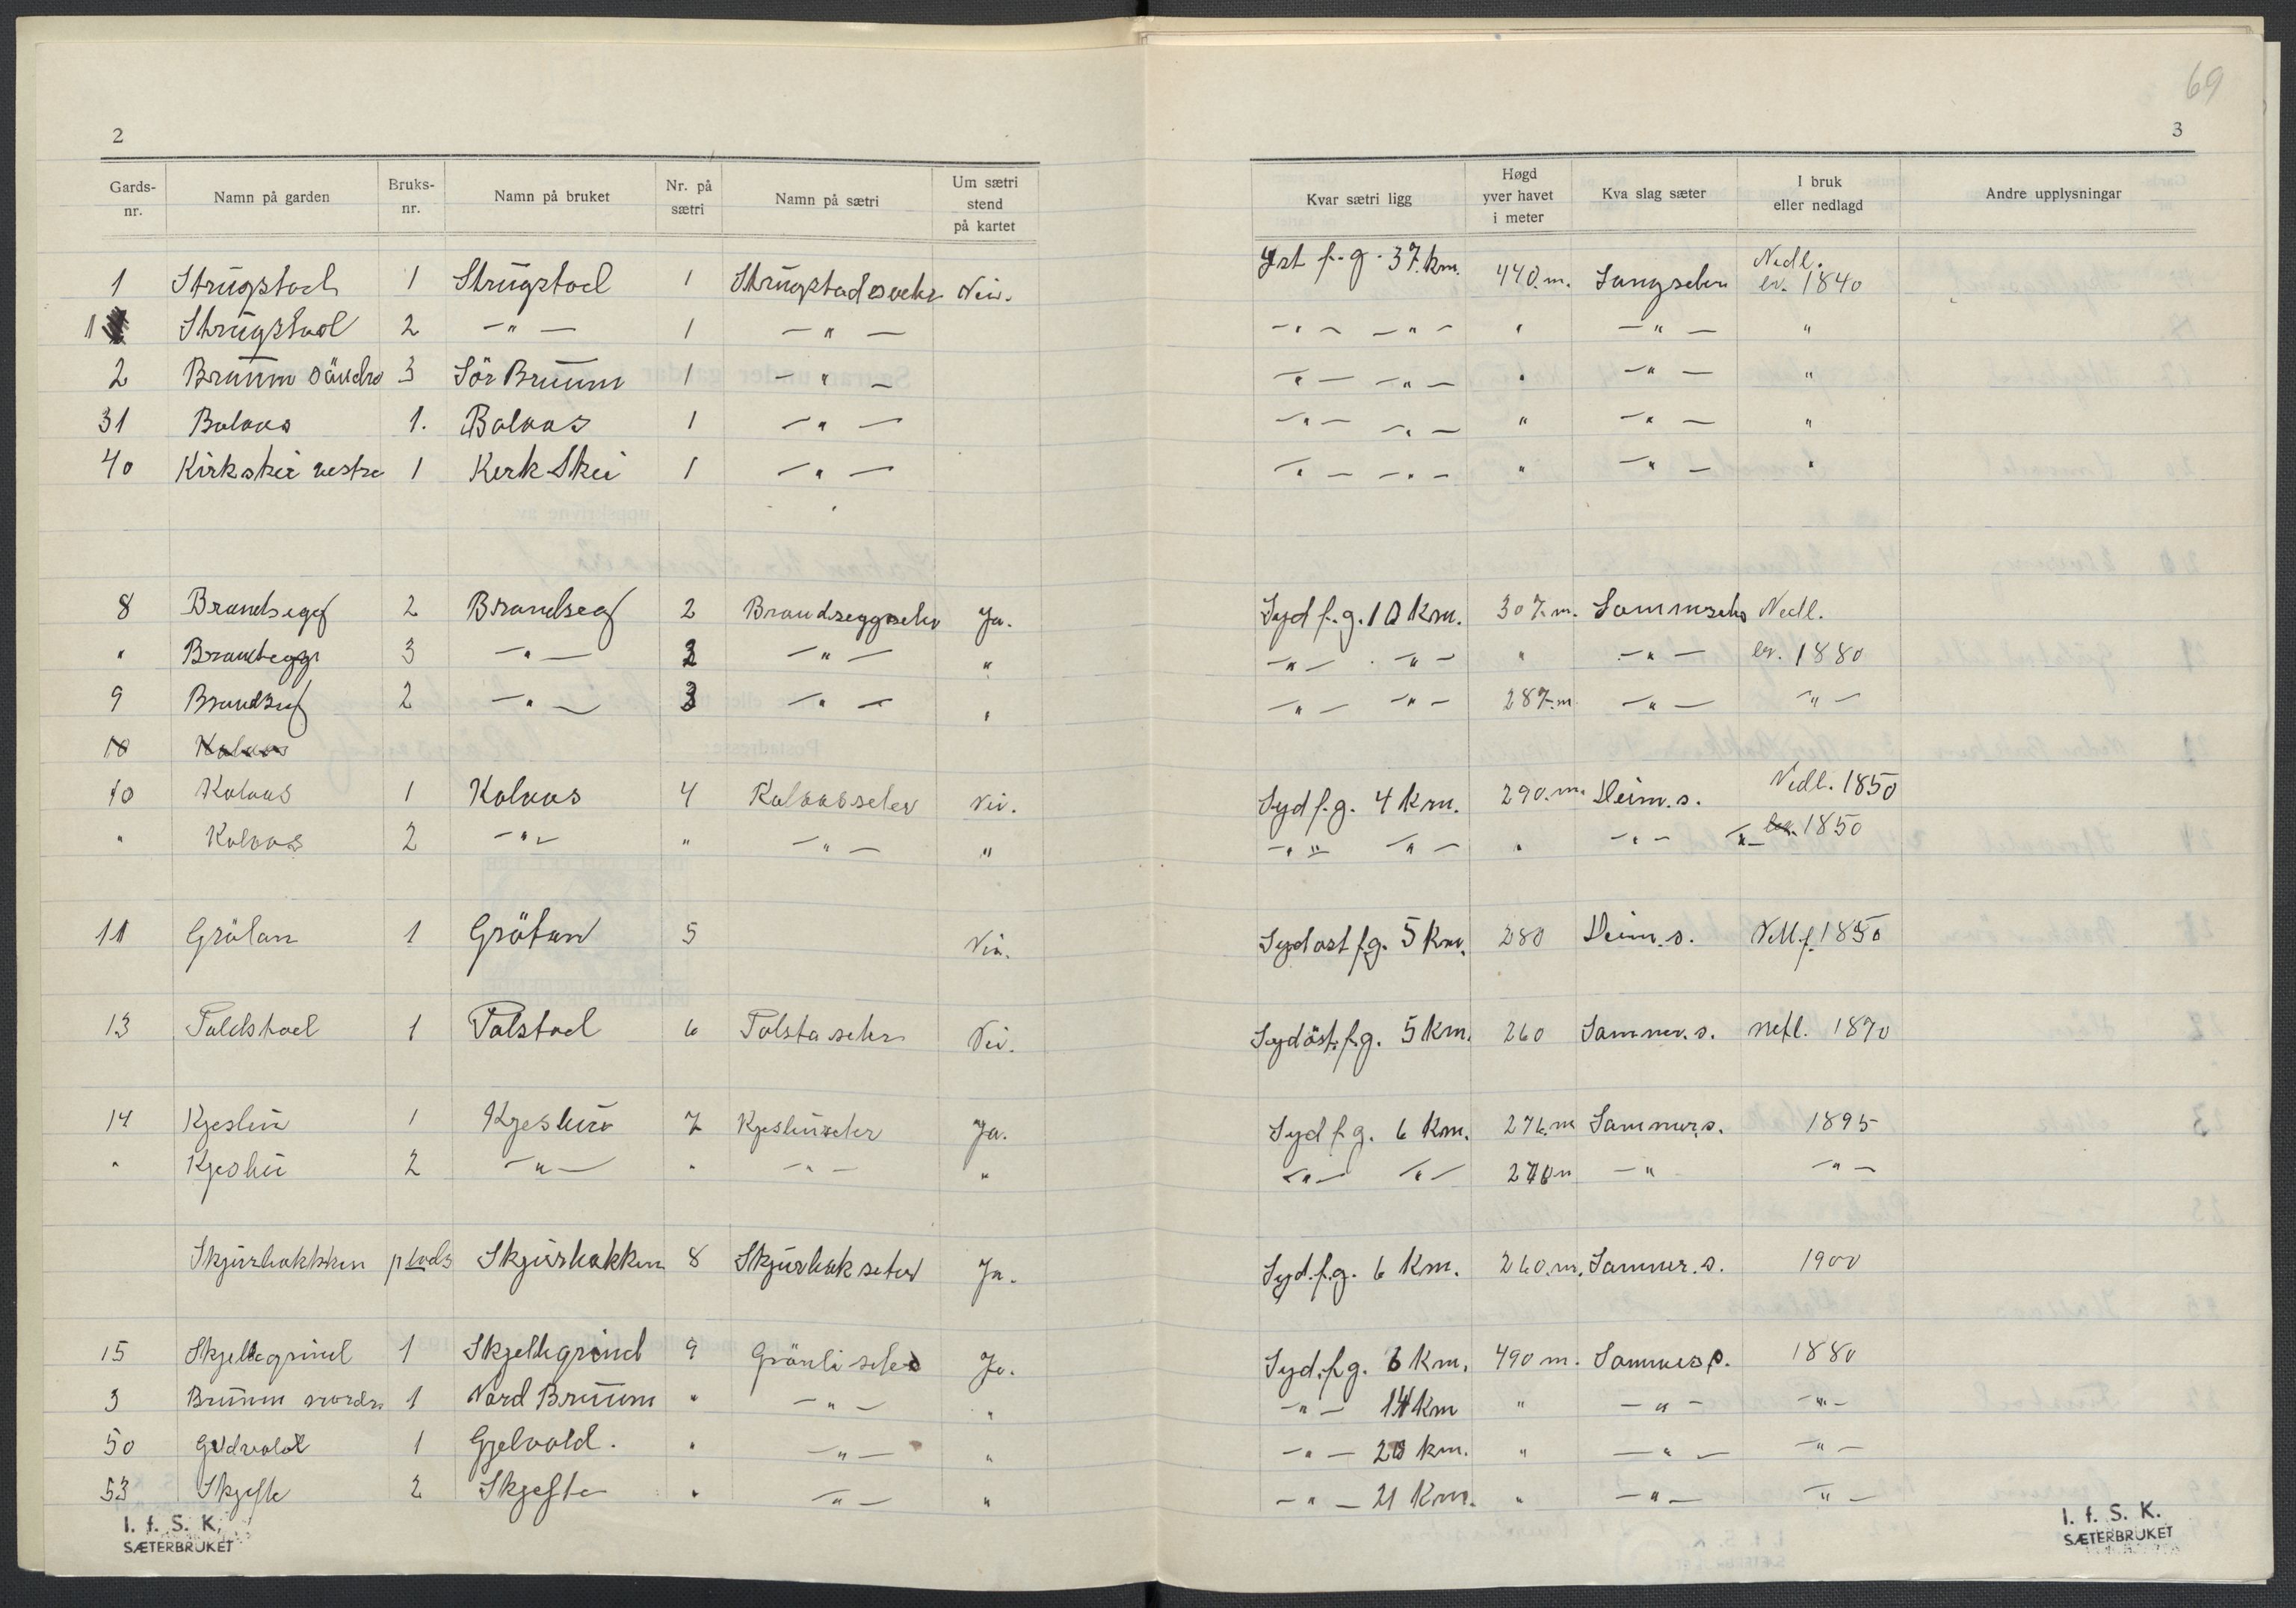 69
2
3
Gards-nr. Namn på garden Bruks-nr. Namn på bruket Nr. på sætri Namn på sætri Um sætri stend på kartet Kvar sætri ligg Høgd yver havet i meter Kva slag sæter I bruk eller nedlagd Andre upplysningar
1 Strugstad 1 Strugstad 1 Strugstadsæter Nei. Yst f.g. 37 km. 440.m. Langseter Nedl. er. 1840
1 Strugstad 2 — " — 1 — " — — " — — " — " — " — "
2 Bruum söndre 3 Sör Bruum 1 — " — — " — — " — " — " — "
31 Bolaas 1. Bolaas 1 — " — — " — — " — " — " — "
40 Kirkskei vestre 1 Kerk Skei 1 — " — — " — — " — " — " — "
8 Brandsegg 2 Brandseg 2 Brandseggseter Ja. Syd f.g. 10 km. 307.m. Sommseter Nedl.
" Brandsegg 3 — " — 2 — " — " — " — — " — " — " — er. 1880
9 Brandseg 2 — " — 3 — " — " — " — — " — 287.m — " — — " —
10 Kolaas
10 Kolaas 1 Kolaas 4 Kolaasseter Nei. Syd f.g. 4 km. 290.m. Heim.s. Nedl. 1850
" Kolaas 2 — " — " — " — " — " — — " — " — " — — " — 1850
11 Grötan 1 Grötan 5 Nei. Sydost f.g. 5 km. 280 Heim.s. 1850
13 Toldstad 1 Tolstad 6 Tolstaseter Nei. Sydöst.f.g. 5 km. 260 Sommer.s. nedl. 1870
14 Kjeslii 1 Kjeslii 7 Kjesliiseter Ja. Syd f.g. 6 km. 276.m Sommer.s. 1895
" Kjeslii 2 — " — " — " — " — " — — " — — " — " —
Skjurbakkken plads Skjurbakken 8 Skjurbakseter Ja. Syd.f.g. 6 km. 260.m. Sommer.s. 1900
15 Skjellegrind 1 Skjellegrind 9 Grönliseter Ja. Syd.f.g. 6 km. 490 m. Sommer s. 1880
3 Bruum nordre 1 Nord Bruum " — " — " — " — 14 km " — " — — " —
50 Gjelvold 1 Gjelvold. " — " — " — " — 20 km. " — " — — " —
53 Skjefte 2 Skjefte " — " — " — " — 21 km. " — " — — " —
I. f. S. K.
SÆTERBRUKET
I. f. S. K.
SÆTERBRUKET